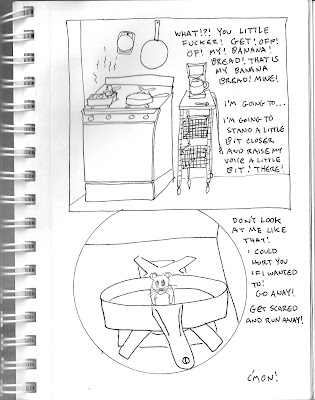 WHAT!?! YOU LITTLE
FUCKER! GET! OFF!
OF! MY! BANANA!
BREAD! THAT IS
MY BANANA
BREAD! MINE!
I'M GOING TO...
I'M GOING TO
STAND A LITTLE
BIT CLOSER
AND RAISE MY
VOICE A LITTLE
BIT! THERE!
DON'T LOOK
AT ME LIKE
THAT!
I COULD
HURT YOU
IF I WANTED
TO!
GO AWAY!
GET SCARED
AND RUN AWAY!
C'MON!